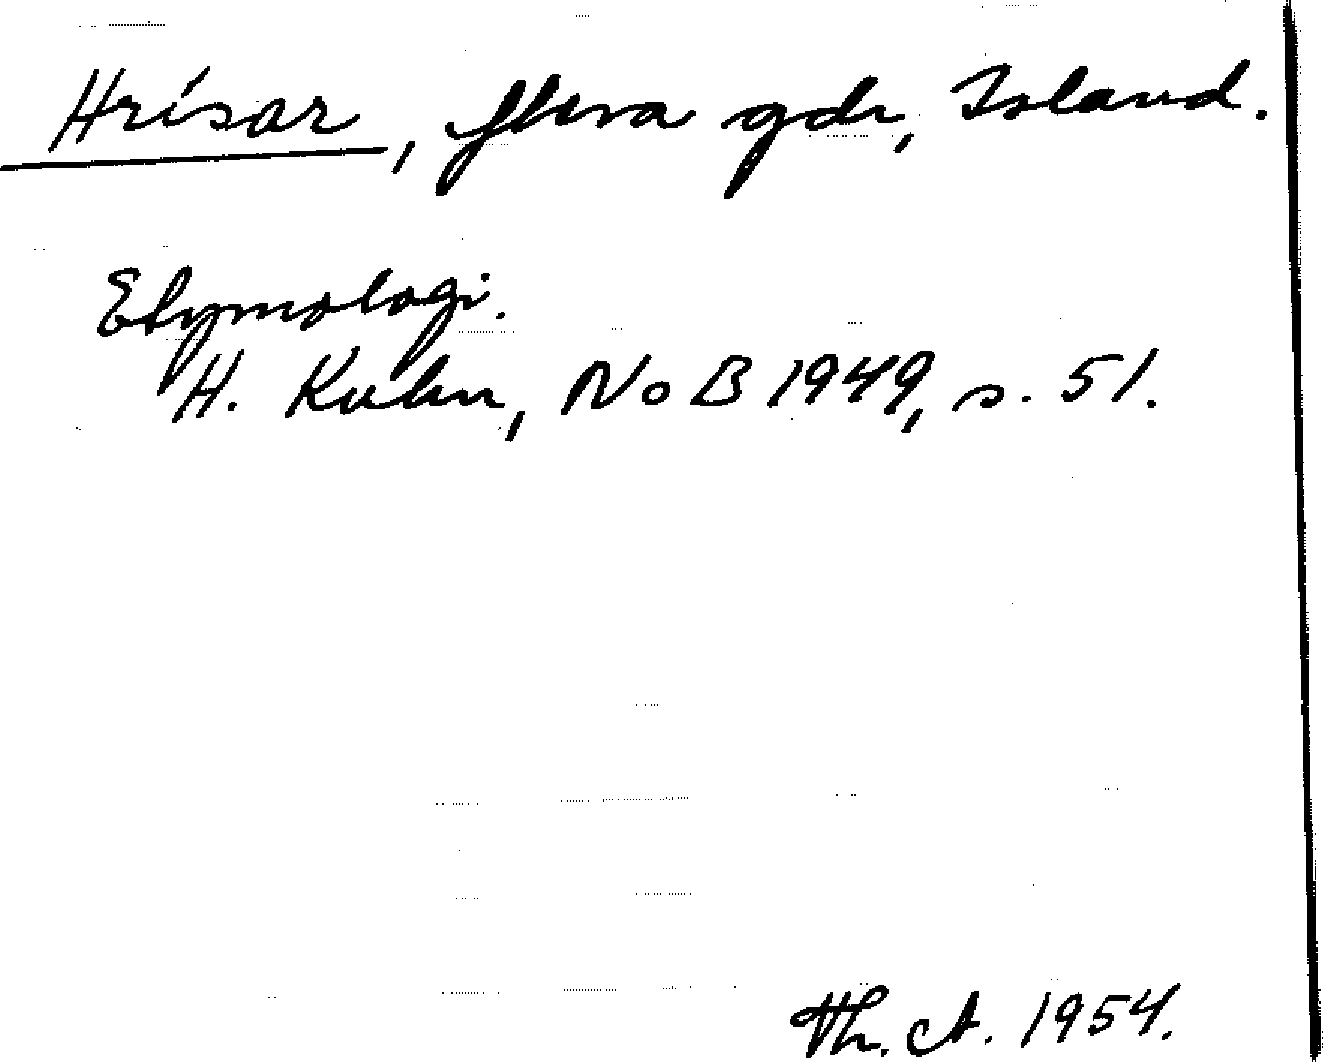 Hrísar, flera gdr, Island.
Etymologi.
H. Kuhn, NoB 1949, s. 51.
Th. A. 1954.